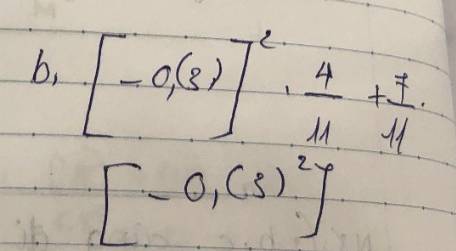 b, [-0,(3)]² . 4/11 + 7/11.
[-0,(3)²]